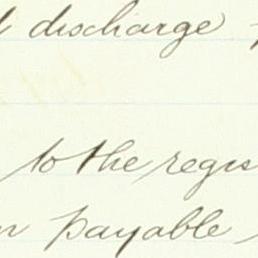 discharge
to the regis
payable